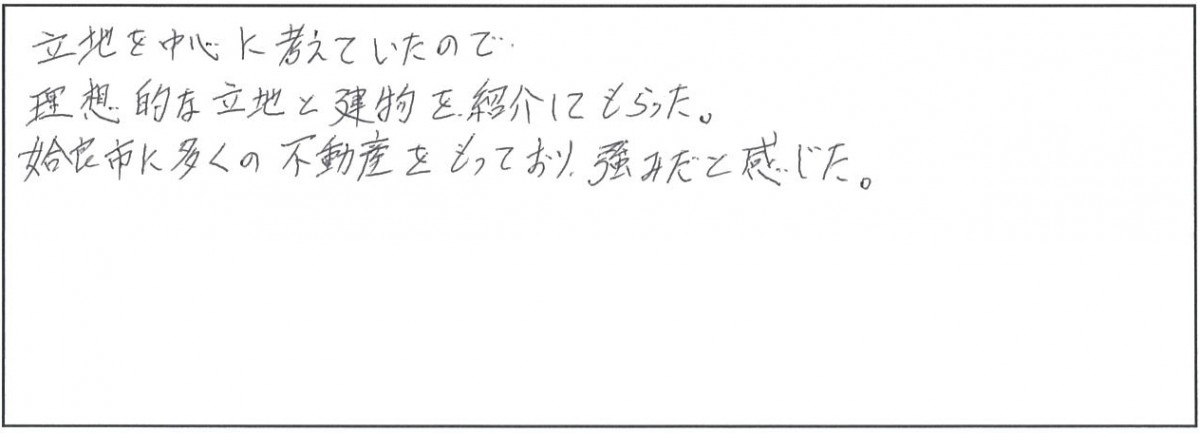 立地を中心に考えていたので
理想的な立地と建物を紹介してもらった。
姶良市に多くの不動産をもっており、強みだと感じた。